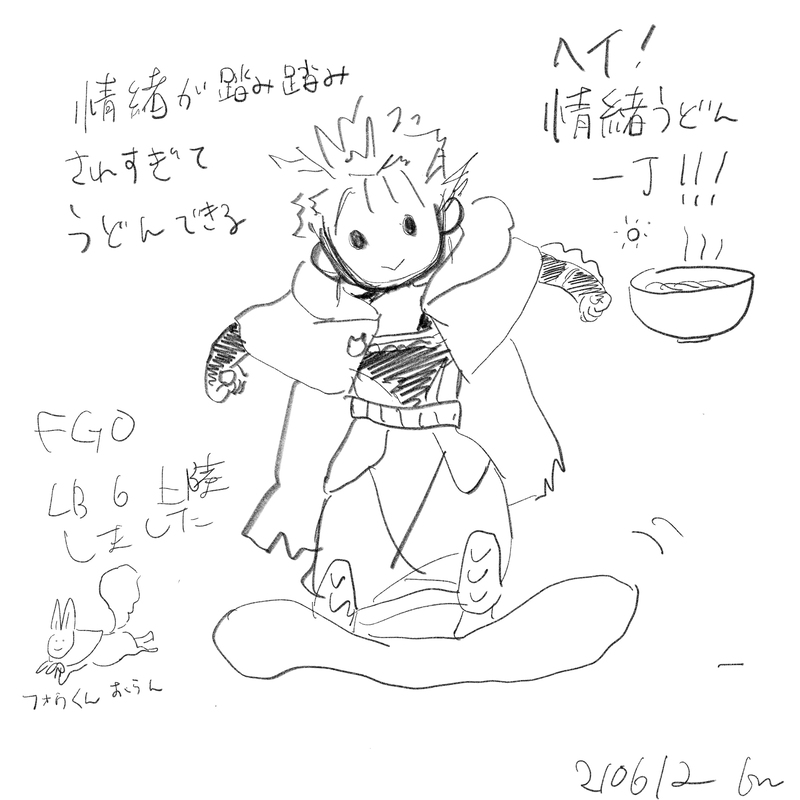 情緒が踏み踏み
されすぎて
うどんできる
ヘイ!
情緒うどん
一丁!!!
FGO
LB6上陸
しました
フォウくん
210612